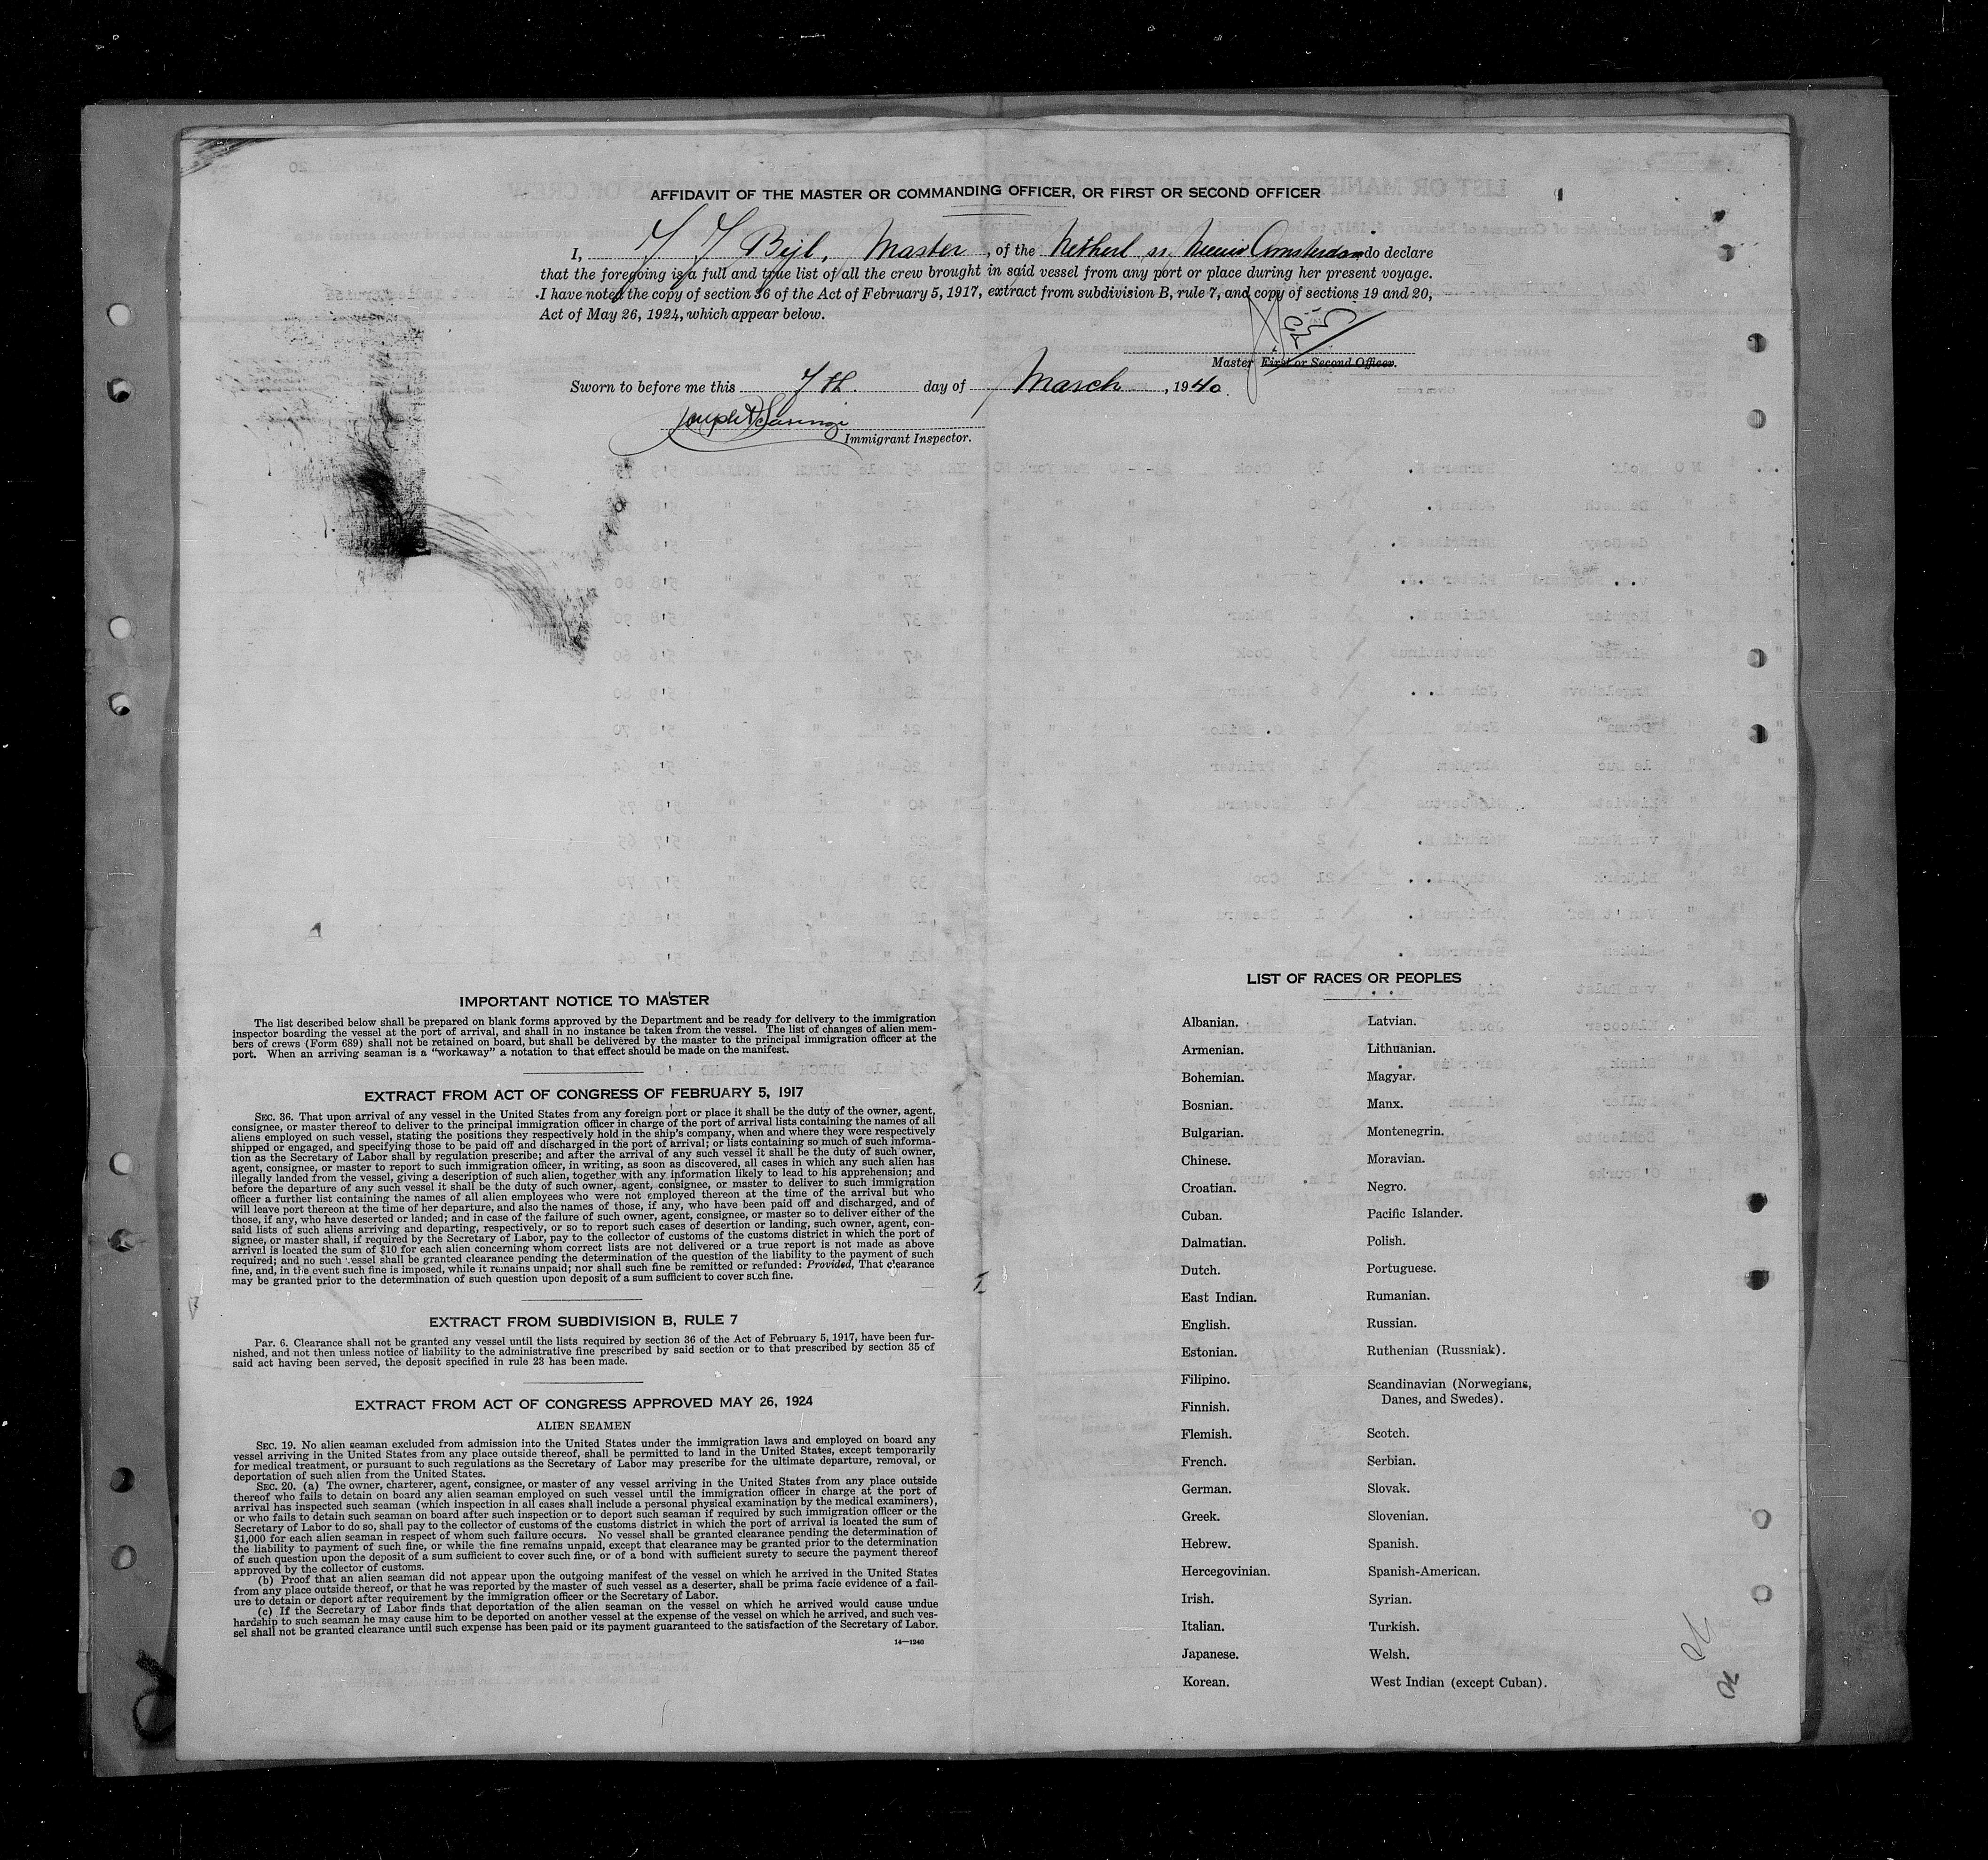 AFFIDAVIT OF THE MASTER OR COMMANDING OFFICER, OR FIRST OR SECOND OFFICER
I, J J Bijl, Master, of the Netherl ss. Nieuw Amsterdam do declare
that the foregoing is a full and true list of all the crew brought in said vessel from any port or place during her present voyage.
I have noted the copy of section 36 of the Act of February 5, 1917, extract from subdivision B, rule 7, and copy of sections 19 and 20,
Act of May 26, 1924, which appear below.
Master First or Second Officer.
Sworn to before me this 7th. day of March, 1940.
Immigrant Inspector.
IMPORTANT NOTICE TO MASTER
The list described below shall be prepared on blank forms approved by the Department and be ready for delivery to the immigration
inspector boarding the vessel at the port of arrival, and shall in no instance be taken from the vessel. The list of changes of alien mem-
bers of crews (Form 689) shall not be retained on board, but shall be delivered by the master to the principal immigration officer at the
port. When an arriving seaman is a "workaway" a notation to that effect should be made on the manifest.
EXTRACT FROM ACT OF CONGRESS OF FEBRUARY 5, 1917
SEC. 36. That upon arrival of any vessel in the United States from any foreign port or place it shall be the duty of the owner, agent,
consignee, or master thereof to deliver to the principal immigration officer in charge of the port of arrival lists containing the names of all
aliens employed on such vessel, stating the positions they respectively hold in the ship's company, when and where they were respectively
shipped or engaged, and specifying those to be paid off and discharged in the port of arrival; or lists containing so much of such informa-
tion as the Secretary of Labor shall by regulation prescribe; and after the arrival of any such vessel it shall be the duty of such owner,
agent, consignee, or master to report to such immigration officer, in writing, as soon as discovered, all cases in which any such alien has
illegally landed from the vessel, giving a description of such alien, together with any information likely to lead to his apprehension; and
before the departure of any such vessel it shall be the duty of such owner, agent, consignee, or master to deliver to such immigration
officer a further list containing the names of all alien employees who were not employed thereon at the time of the arrival but who
will leave port thereon at the time of her departure, and also the names of those, if any, who have been paid off and discharged, and of
those, if any, who have deserted or landed; and in case of the failure of such owner, agent, consignee, or master so to deliver either of the
said lists of such aliens arriving and departing, respectively, or so to report such cases of desertion or landing, such owner, agent, con-
signee, or master shall, if required by the Secretary of Labor, pay to the collector of customs of the customs district in which the port of
arrival is located the sum of $10 for each alien concerning whom correct lists are not delivered or a true report is not made as above
required; and no such vessel shall be granted clearance pending the determination of the question of the liability to the payment of such
fine, and, in the event such fine is imposed, while it remains unpaid; nor shall such fine be remitted or refunded: Provided, That clearance
may be granted prior to the determination of such question upon deposit of a sum sufficient to cover such fine.
EXTRACT FROM SUBDIVISION B, RULE 7
Par. 6. Clearance shall not be granted any vessel until the lists required by section 36 of the Act of February 5, 1917, have been fur-
nished, and not then unless notice of liability to the administrative fine prescribed by said section or to that prescribed by section 35 of
said act having been served, the deposit specified in rule 23 has been made.
EXTRACT FROM ACT OF CONGRESS APPROVED MAY 26, 1924
ALIEN SEAMEN
SEC. 19. No alien seaman excluded from admission into the United States under the immigration laws and employed on board any
vessel arriving in the United States from any place outside thereof, shall be permitted to land in the United States, except temporarily
for medical treatment, or pursuant to such regulations as the Secretary of Labor may prescribe for the ultimate departure, removal, or
deportation of such alien from the United States.
SEC. 20. (a) The owner, charterer, agent, consignee, or master of any vessel arriving in the United States from any place outside
thereof who fails to detain on board any alien seaman employed on such vessel until the immigration officer in charge at the port of
arrival has inspected such seaman (which inspection in all cases shall include a personal physical examination by the medical examiners),
or who fails to detain such seaman on board after such inspection or to deport such seaman if required by such immigration officer or the
Secretary of Labor to do so, shall pay to the collector of customs of the customs district in which the port of arrival is located the sum of
$1,000 for each alien seaman in respect of whom such failure occurs. No vessel shall be granted clearance pending the determination of
the liability to payment of such fine, or while the fine remains unpaid, except that clearance may be granted prior to the determination
of such question upon the deposit of a sum sufficient to cover such fine, or of a bond with sufficient surety to secure the payment thereof
approved by the collector of customs.
(b) Proof that an alien seaman did not appear upon the outgoing manifest of the vessel on which he arrived in the United States
from any place outside thereof, or that he was reported by the master of such vessel as a deserter, shall be prima facie evidence of a fail-
ure to detain or deport after requirement by the immigration officer or the Secretary of Labor.
(c) If the Secretary of Labor finds that deportation of the alien seaman on the vessel on which he arrived would cause undue
hardship to such seaman he may cause him to be deported on another vessel at the expense of the vessel on which he arrived, and such ves-
sel shall not be granted clearance until such expense has been paid or its payment guaranteed to the satisfaction of the Secretary of Labor.
14—1240
LIST OF RACES OR PEOPLES
Albanian.
Armenian.
Bohemian.
Bosnian.
Bulgarian.
Chinese.
Croatian.
Cuban.
Dalmatian.
Dutch.
East Indian.
English.
Estonian.
Filipino.
Finnish.
Flemish.
French.
German.
Greek.
Hebrew.
Hercegovinian.
Irish.
Italian.
Japanese.
Korean.
Latvian.
Lithuanian.
Magyar.
Manx.
Montenegrin.
Moravian.
Negro.
Pacific Islander.
Polish.
Portuguese.
Rumanian.
Russian.
Ruthenian (Russniak).
Scandinavian (Norwegians,
Danes, and Swedes).
Scotch.
Serbian.
Slovak.
Slovenian.
Spanish.
Spanish-American.
Syrian.
Turkish.
Welsh.
West Indian (except Cuban).